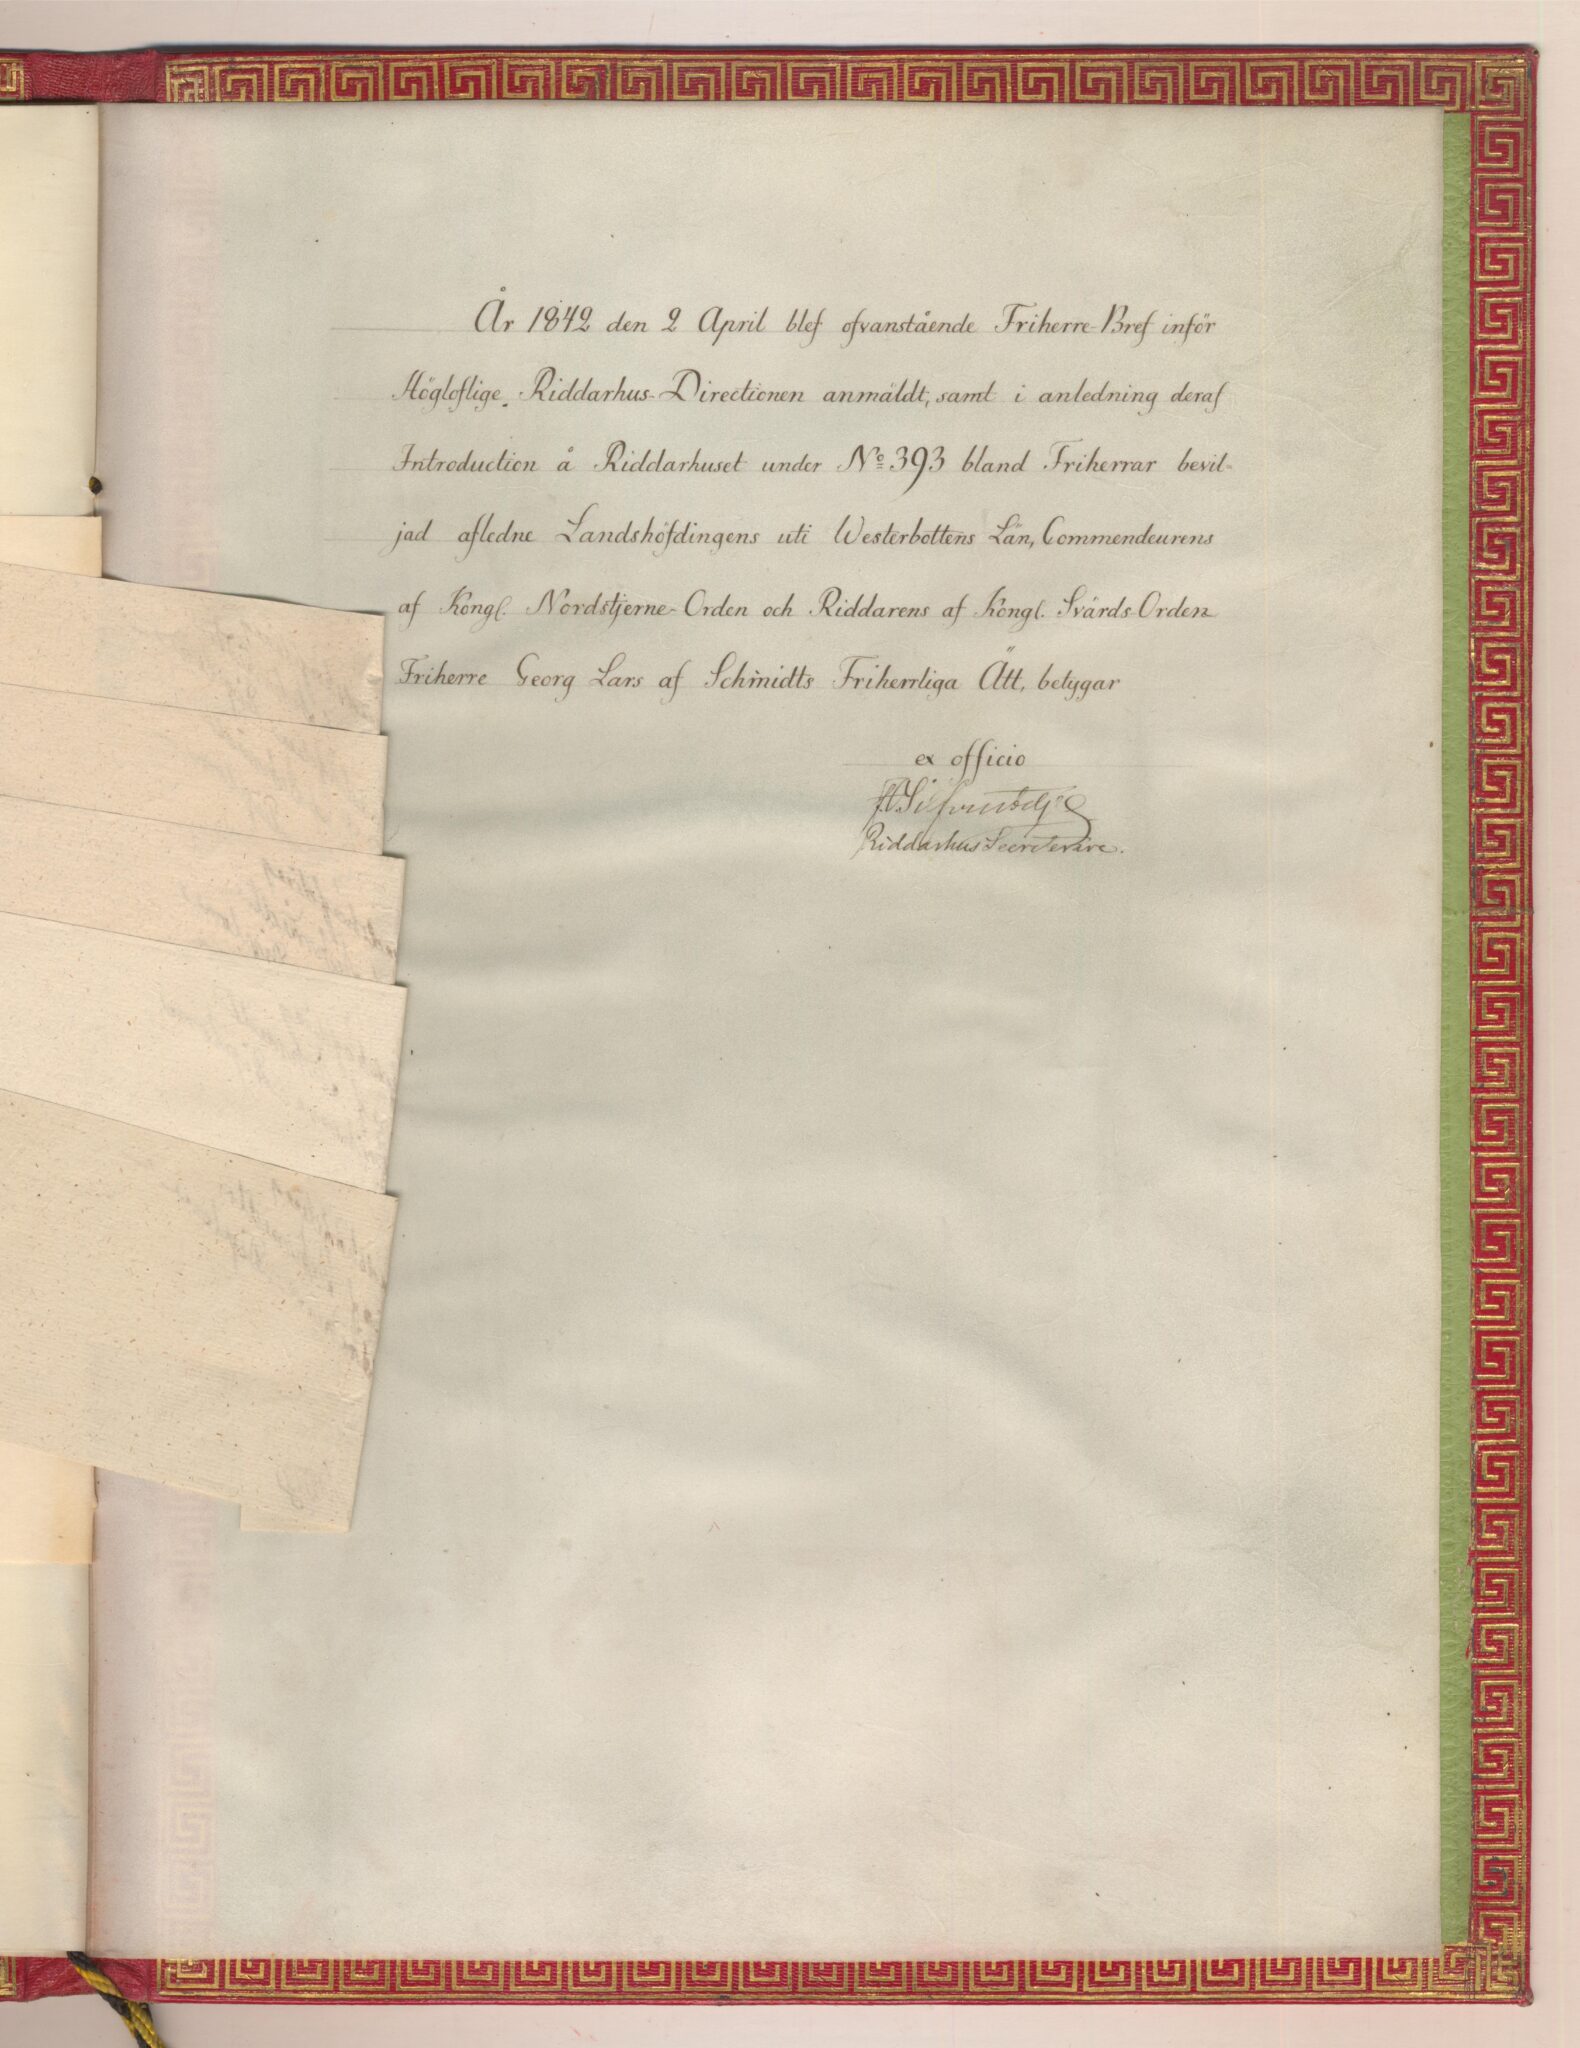 År 1842 den 2 April blef ofvanstående Friherre-Bref inför
Högloflige Riddarhus-Directionen anmäldt, samt i anledning deraf
Introduction å Riddarhuset under No 393 bland Friherrar bevil-
jad afledne Landshöfdingens uti Westerbottens Län, Commendeurens
af Kongl. Nordstjerne-Orden och Riddarens af Kongl. Svärds-Orden
Friherre Georg Lars af Schmidts Friherrliga Ätt, betygar
ex officio
Riddarhus Secreterare.